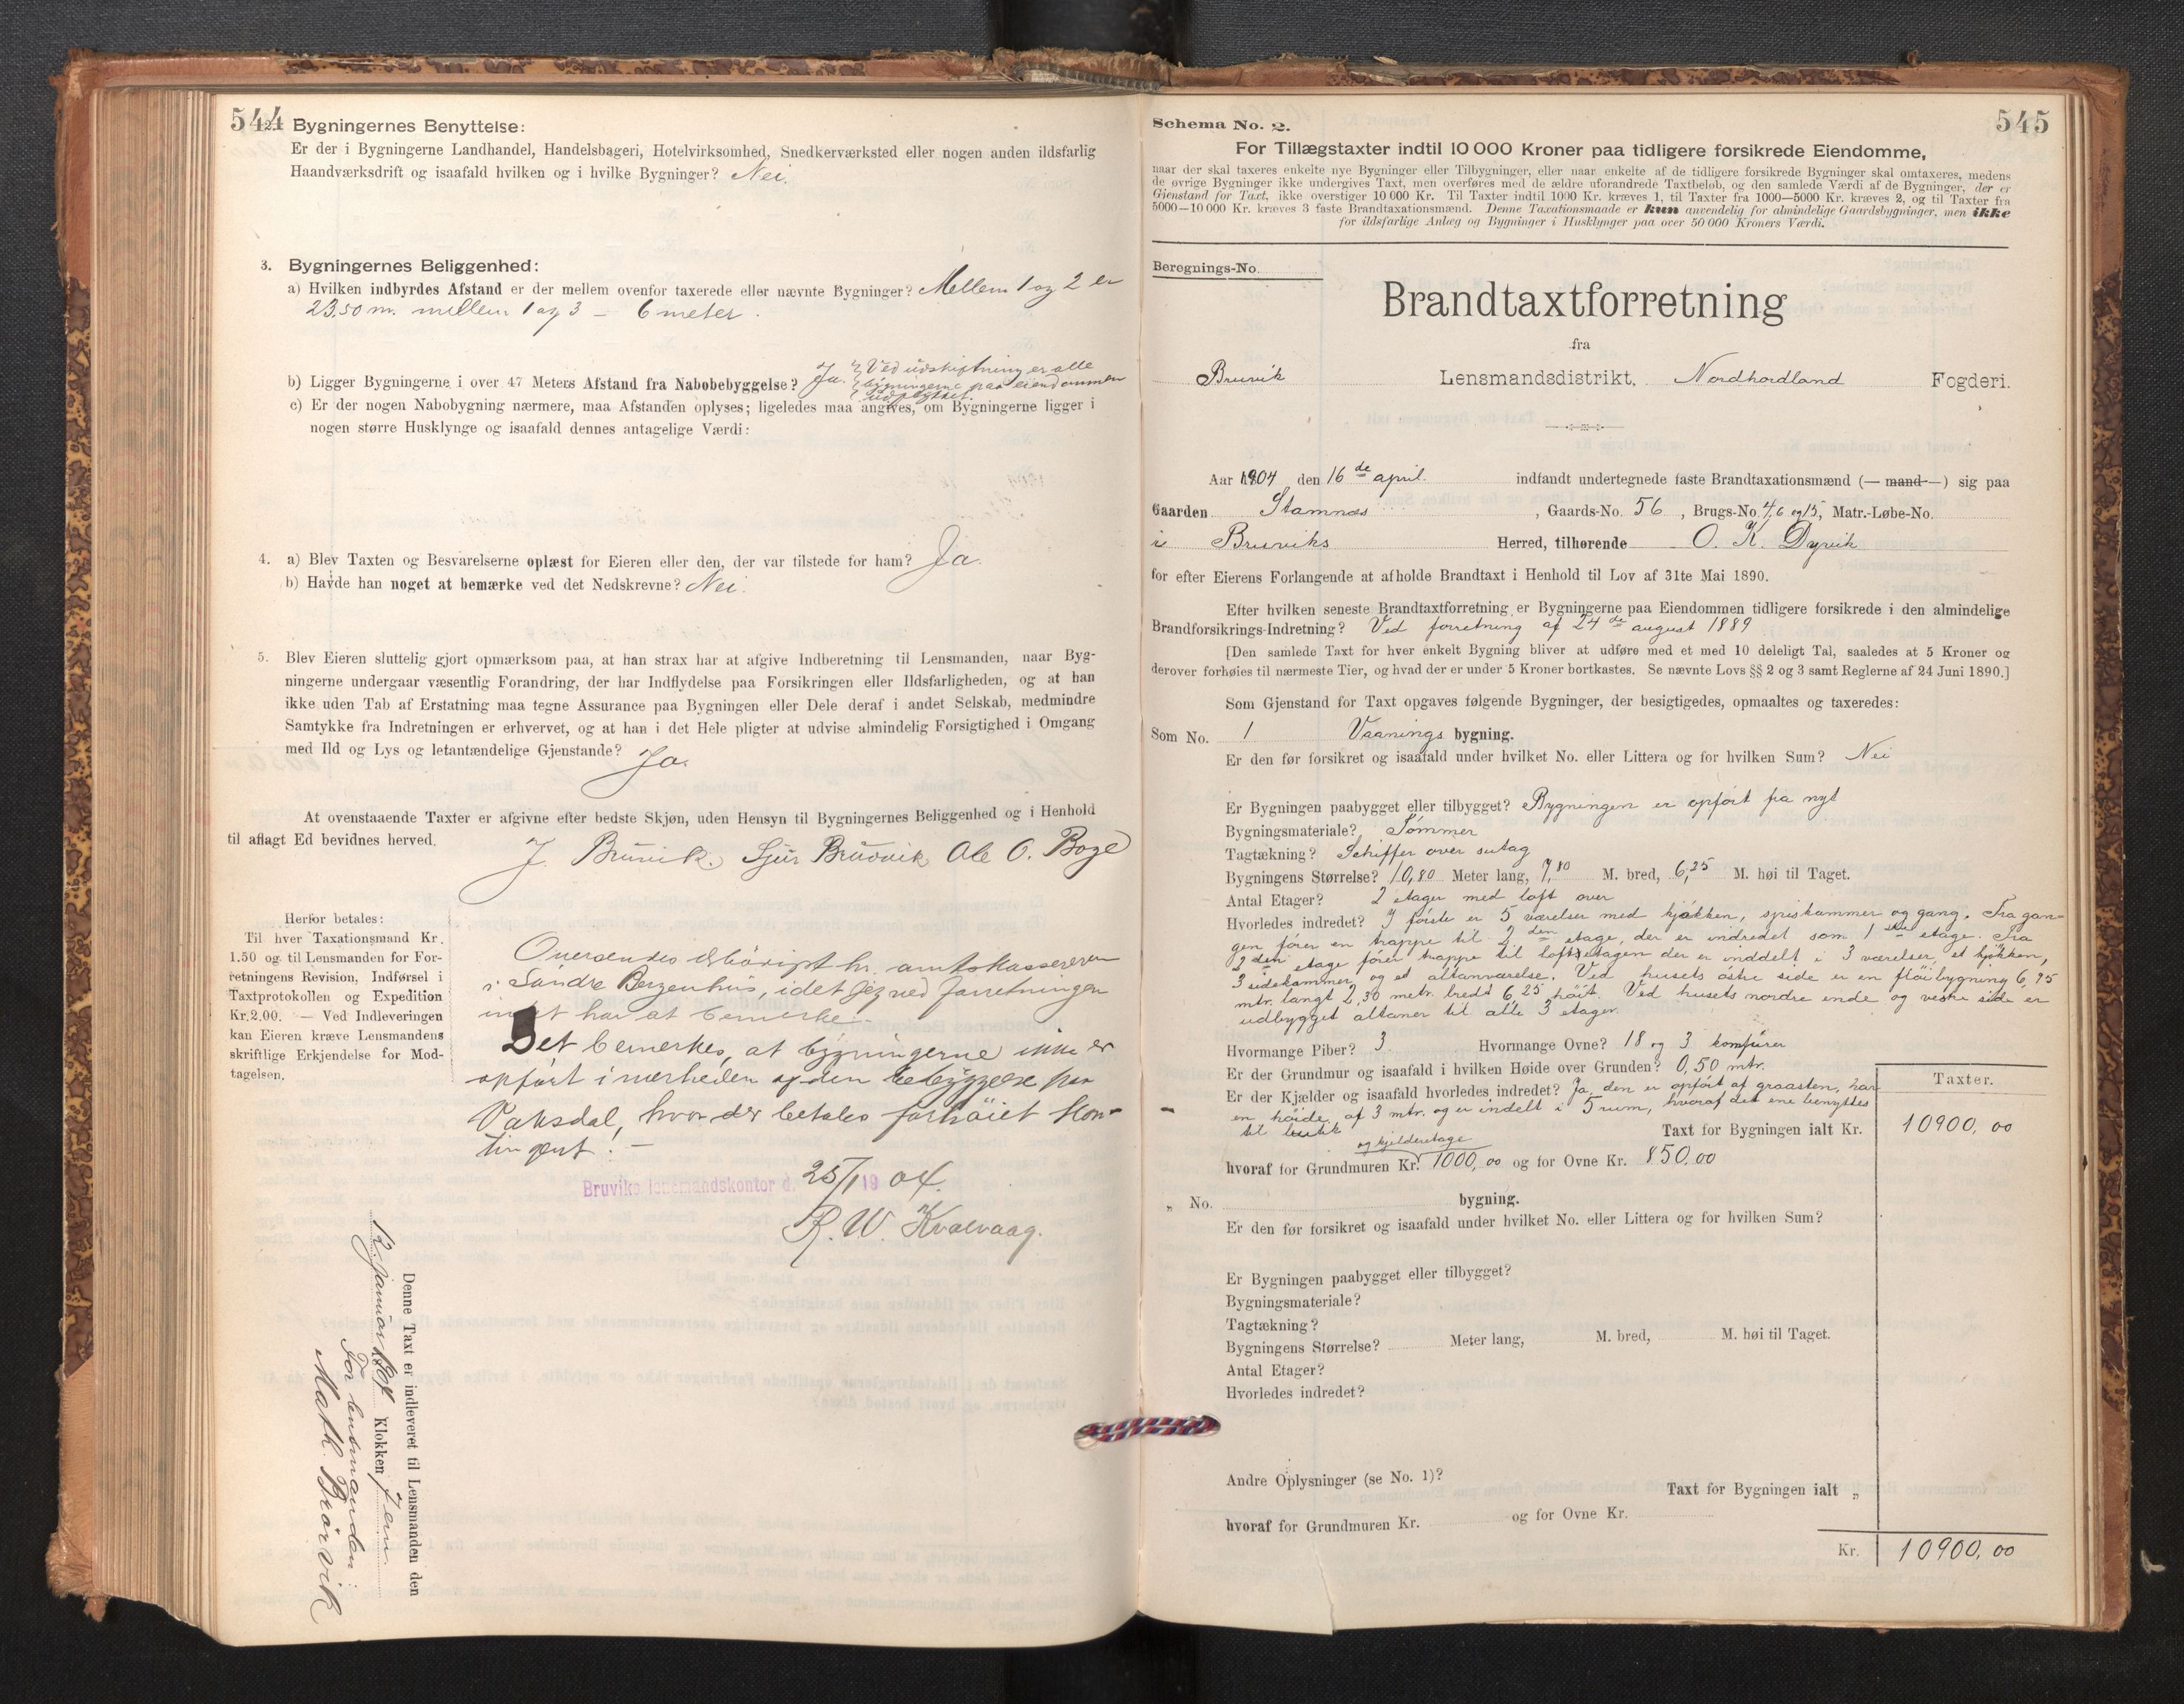 544
2. Bygningernes Benyttelse:
Er der i Bygningerne Landhandel, Handelsbageri, Hotelvirksomhed, Snedkerværksted eller nogen anden ildsfarlig
Haandværksdrift og isaafald hvilken og i hvilke Bygninger? Nei.
3. Bygningernes Beliggenhed:
a) Hvilken indbyrdes Afstand er der mellem ovenfor taxerede eller nævnte Bygninger? Mellem 1 og 2 er
23,50 m. mellem 1 og 3 – 6 meter.
b) Ligger Bygningerne i over 47 Meters Afstand fra Nabobebyggelse? Ja. Ved udskiftning er alle
bygningerne paa eiendommen
udflyttet.
c) Er der nogen Nabobygning nærmere, maa Afstanden oplyses; ligeledes maa angives, om Bygningerne ligger i
nogen større Husklynge og isaafald dennes antagelige Værdi:
4. a) Blev Taxten og Besvarelserne oplæst for Eieren eller den, der var tilstede for ham? Ja.
b) Havde han noget at bemærke ved det Nedskrevne? Nei.
5. Blev Eieren sluttelig gjort opmærksom paa, at han strax har at afgive Indberetning til Lensmanden, naar Byg-
ningerne undergaar væsentlig Forandring, der har Indflydelse paa Forsikringen eller Ildsfarligheden, og at han
ikke uden Tab af Erstatning maa tegne Assurance paa Bygningen eller Dele deraf i andet Selskab, medmindre
Samtykke fra Indretningen er erhvervet, og at han i det Hele pligter at udvise almindelig Forsigtighed i Omgang
med Ild og Lys og letantændelige Gjenstande? Ja.
At ovenstaaende Taxter er afgivne efter bedste Skjøn, uden Hensyn til Bygningernes Beliggenhed og i Henhold
til aflagt Ed bevidnes herved.
J. Bruvik. Sjur Bruvik Ole O. Boge
Herfor betales:
Til hver Taxationsmand Kr.
1.50 og til Lensmanden for For-
retningens Revision, Indførsel i
Taxtprotokollen og Expedition
Kr. 2.00. — Ved Indleveringen
kan Eieren kræve Lensmandens
skriftlige Erkjendelse for Mod-
tagelsen.
Oversendes hr. amtskassereren
i Søndre Bergenhus, idet jeg ved forretningen
intet har at bemerke.
Det bemerkes, at bygningerne ikke er
opført i nærheden af den bebyggelse paa
Vaksdal, hvor der betales forhøiet kon-
tingent! –
Bruviks lensmandskontor d. 25/1 1904.
R. W. Kvalvaag.
Denne Taxt er indleveret til Lensmanden den
12 januar 1904 Klokken 7 em.
For lensmanden
Math. Brørvik
545
Schema No. 2.
For Tillægstaxter indtil 10 000 Kroner paa tidligere forsikrede Eiendomme,
naar der skal taxeres enkelte nye Bygninger eller Tilbygninger, eller naar enkelte af de tidligere forsikrede Bygninger skal omtaxeres, medens
de øvrige Bygninger ikke undergives Taxt, men overføres med de ældre uforandrede Taxtbeløb, og den samlede Værdi af de Bygninger, der er
Gjenstand for Taxt, ikke overstiger 10 000 Kr. Til Taxter indtil 1000 Kr. kræves 1, til Taxter fra 1000—5000 Kr. kræves 2, og til Taxter fra
5000—10 000 Kr. kræves 3 faste Brandtaxationsmænd. Denne Taxationsmaade er kun anvendelig for almindelige Gaardsbygninger, men ikke
for ildsfarlige Anlæg og Bygninger i Husklynger paa over 50 000 Kroners Værdi.
Beregnings-No.
Brandtaxtforretning
fra
Bruvik Lensmandsdistrikt, Nordhordland Fogderi.
Aar 1904 den 16de april. indfandt undertegnede faste Brandtaxationsmænd (— mand —) sig paa
Gaarden Stamnæs, Gaards-No. 56, Brugs-No. 4,6 og 15, Matr.-Løbe-No.
i Bruviks Herred, tilhørende O. K. Dyvik
for efter Eierens Forlangende at afholde Brandtaxt i Henhold til Lov af 31te Mai 1890.
Efter hvilken seneste Brandtaxtforretning er Bygningerne paa Eiendommen tidligere forsikrede i den almindelige
Brandforsikrings-Indretning? Ved forretning af 24de august 1889
[Den samlede Taxt for hver enkelt Bygning bliver at udføre med et med 10 deleligt Tal, saaledes at 5 Kroner og
derover forhøies til nærmeste Tier, og hvad der er under 5 Kroner bortkastes. Se nævnte Lovs §§ 2 og 3 samt Reglerne af 24 Juni 1890.]
Som Gjenstand for Taxt opgaves følgende Bygninger, der besigtigedes, opmaaltes og taxeredes:
Som No. 1 Vaanings bygning.
Er den før forsikret og isaafald under hvilket No. eller Littera og for hvilken Sum? Nei
Er Bygningen paabygget eller tilbygget? Bygningen er opført fra nyt
Bygningsmateriale? Tømmer
Tagtækning? Schiffer over sutag
Bygningens Størrelse? 10,80 Meter lang, 7,80 M. bred, 6,25 M. høi til Taget.
Antal Etager? 2 etager med loft over
Hvorledes indredet? I første er 5 værelser med kjøkken, spiskammer og gang. Fra gan-
gen fører en trappe til 2den etage, der er indredet som 1ste etage. Fra
2den etage fører trappe til loftsetagen der er inddelt i 3 værelser, et kjøkken,
3 sidekammer og et altanværelse. Ved husets østre side er en fløibygning 6,95
mtr. langt 2,30 metr. bredt 6,25 høit. Ved husets nordre ende og vestre side er
udbygget altaner til alle 3 etager.
Hvormange Piber? 3 Hvormange Ovne? 18 og 3 komfurer
Er der Grundmur og isaafald i hvilken Høide over Grunden? 0,50 mtr.
Er der Kjælder og isaafald hvorledes indredet? Ja, den er opført af graasten, har
en høide af 3 mtr. og er indelt i 5 rum, hvoraf det ene benyttes
til butik
Taxter.
Taxt for Bygningen ialt Kr. 10900,00
og kjelderetage
hvoraf for Grundmuren Kr. 1000,00 og for Ovne Kr. 850,00
„ No. bygning.
Er den før forsikret og isaafald under hvilket No. eller Littera og for hvilken Sum?
Er Bygningen paabygget eller tilbygget?
Bygningsmateriale?
Tagtækning?
Bygningens Størrelse? Meter lang, M. bred, M. høi til Taget.
Antal Etager?
Hvorledes indredet?
Andre Oplysninger (se No. 1)?
Taxt for Bygningen ialt „
hvoraf for Grundmuren Kr. og for Ovne Kr.
Kr. 10900,00